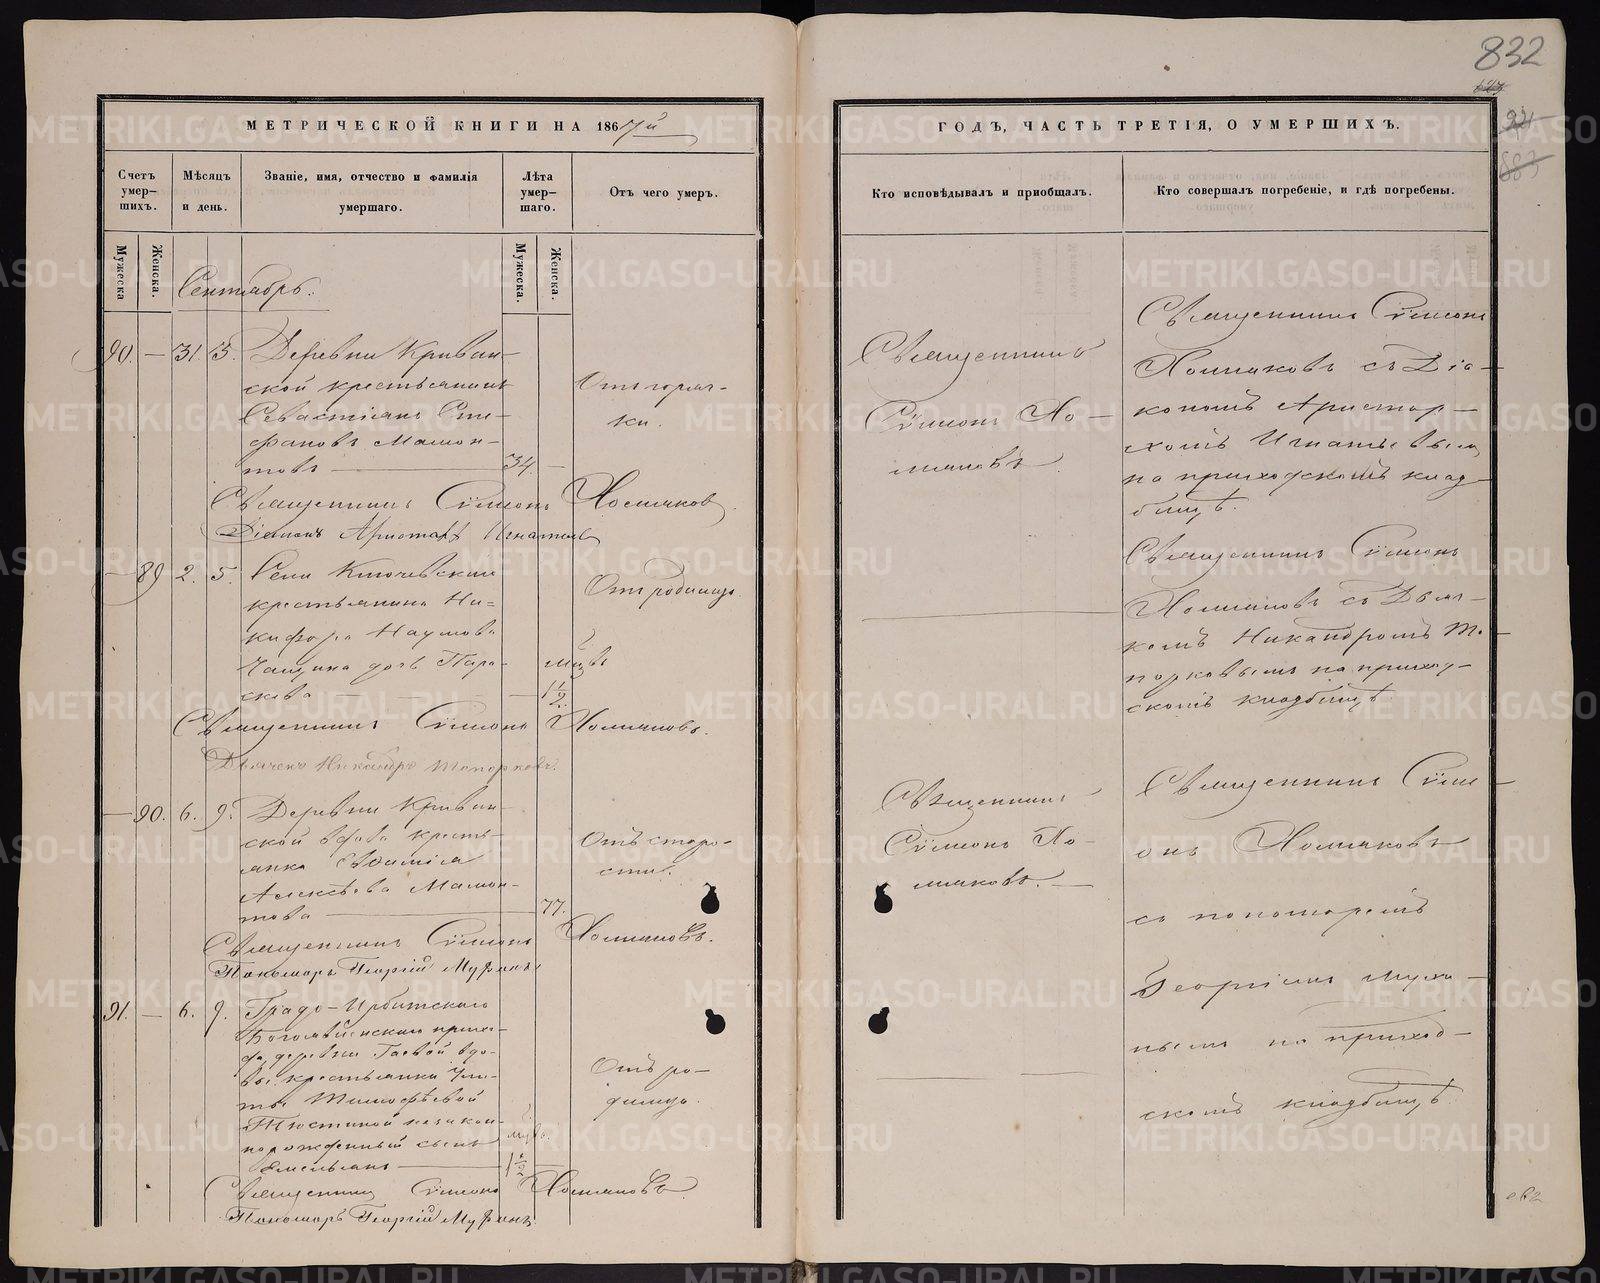 832
МЕТРИЧЕСКОЙ КНИГИ НА 1867й
ГОДЪ, ЧАСТЬ ТРЕТІЯ, О УМЕРШИХЪ.
Счетъ умер-шихъ.
Мѣсяцъ и день.
Званіе, имя, отчество и фамилія умершаго.
Лѣта умер-шаго.
Отъ чего умеръ.
Кто исповѣдывалъ и пріобщалъ.
Кто совершалъ погребеніе, и гдѣ погребены.
Мужеска
Женска.
Мужеска.
Женска.
Сентябрь.
90. — 31. 3. Деревни Кривин-
ской крестьянинъ
Севастіанъ Сте-
фановъ Мамон-
товъ — 34. —
Отъ горяч-
ки.
Священникъ
Сѵмеонъ Хо-
мяковъ
Священникъ Сѵмеонъ
Хомяковъ съ Діа-
кономъ Аристар-
хомъ Игнатьевымъ
на приходскомъ клад-
бищѣ.
Священникъ Сѵмеонъ Хомяковъ
Діаконъ Аристархъ Игнатьевъ
— 89 2. 5. Села Ключевскаго
крестьянина Ни-
кифора Наумова
дочь Пара-
скева — мцъ 1 1/2.
Отъ родимца.
Священникъ Сѵмеонъ
Хомяковъ съ Дьяч-
комъ Никандромъ То-
порковымъ на приход-
скомъ кладбищѣ
Священникъ Сѵмеонъ Хомяковъ.
Дьячекъ Никандръ Топорковъ.
— 90. 6. 9. Деревни Кривин-
ской вдова кресть-
янка Евдокія
Алексѣева Мамон-
това — 77.
Отъ старо-
сти.
Священникъ
Сѵмеонъ Хо-
мяковъ. —
Священникъ Сѵме-
онъ Хомяковъ
съ пономаремъ
Георгіемъ
на приход-
скомъ кладбищѣ
Священникъ Сѵмеонъ Хомяковъ.
Пономарь Георгій
91. — 6. 9. Градо-Ирбитскаго
Богоявленскаго прихо-
да деревни Гаевой вдо-
вы крестьянки
Тимофѣевой
незакон-
норожденный сынъ
Емельянъ — 1 1/2
Отъ ро-
димца.
Священникъ Сѵмеонъ Хомяковъ
Пономарь Георгій
METRIKI.GASO-URAL.RU